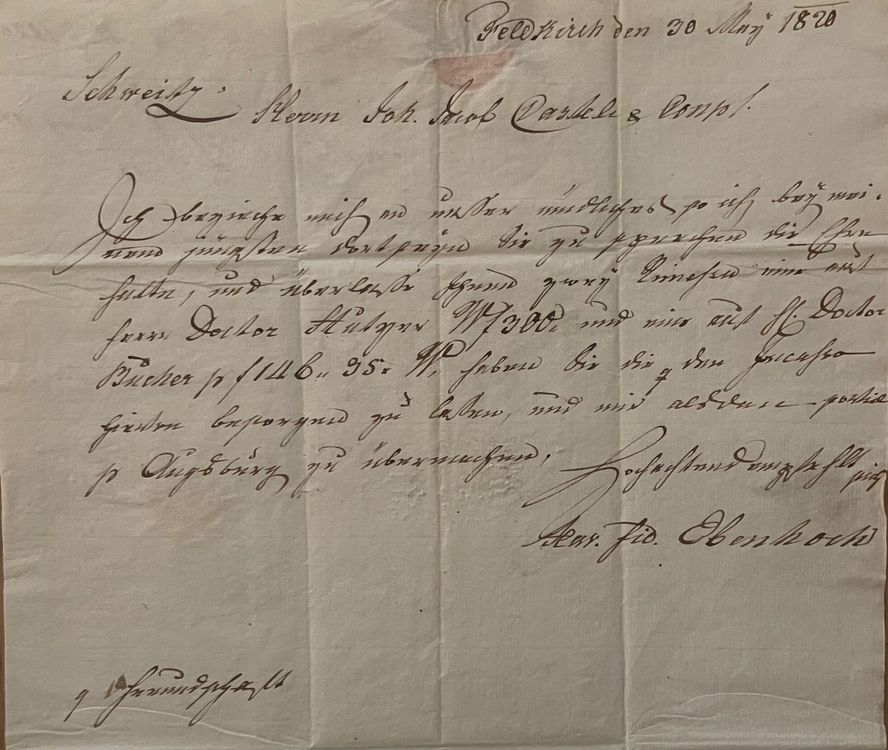 Feldkirch den 30 May 1820
Schweitz.
Herrn Joh. Jacob Castele & Compl.
Ich beziehe mich an unser mündliches so ich bey mei-
nem jüngsten dortseyn Sie zu sprechen die Ehre
hatte, und überlasse Ihnen zwey eine auf
Herrn Doctor Stutzer W f 300. und eine auf H. Doctor
Bucher p f 146. 35. W, haben Sie die den Incasso
hievon besorgend zu lassen, und mir alsdann
p Augsburg zu übermachen,
Hochachtend empfehlt
sich
Xav. Fid. Ebenhoch
q Freundschaft